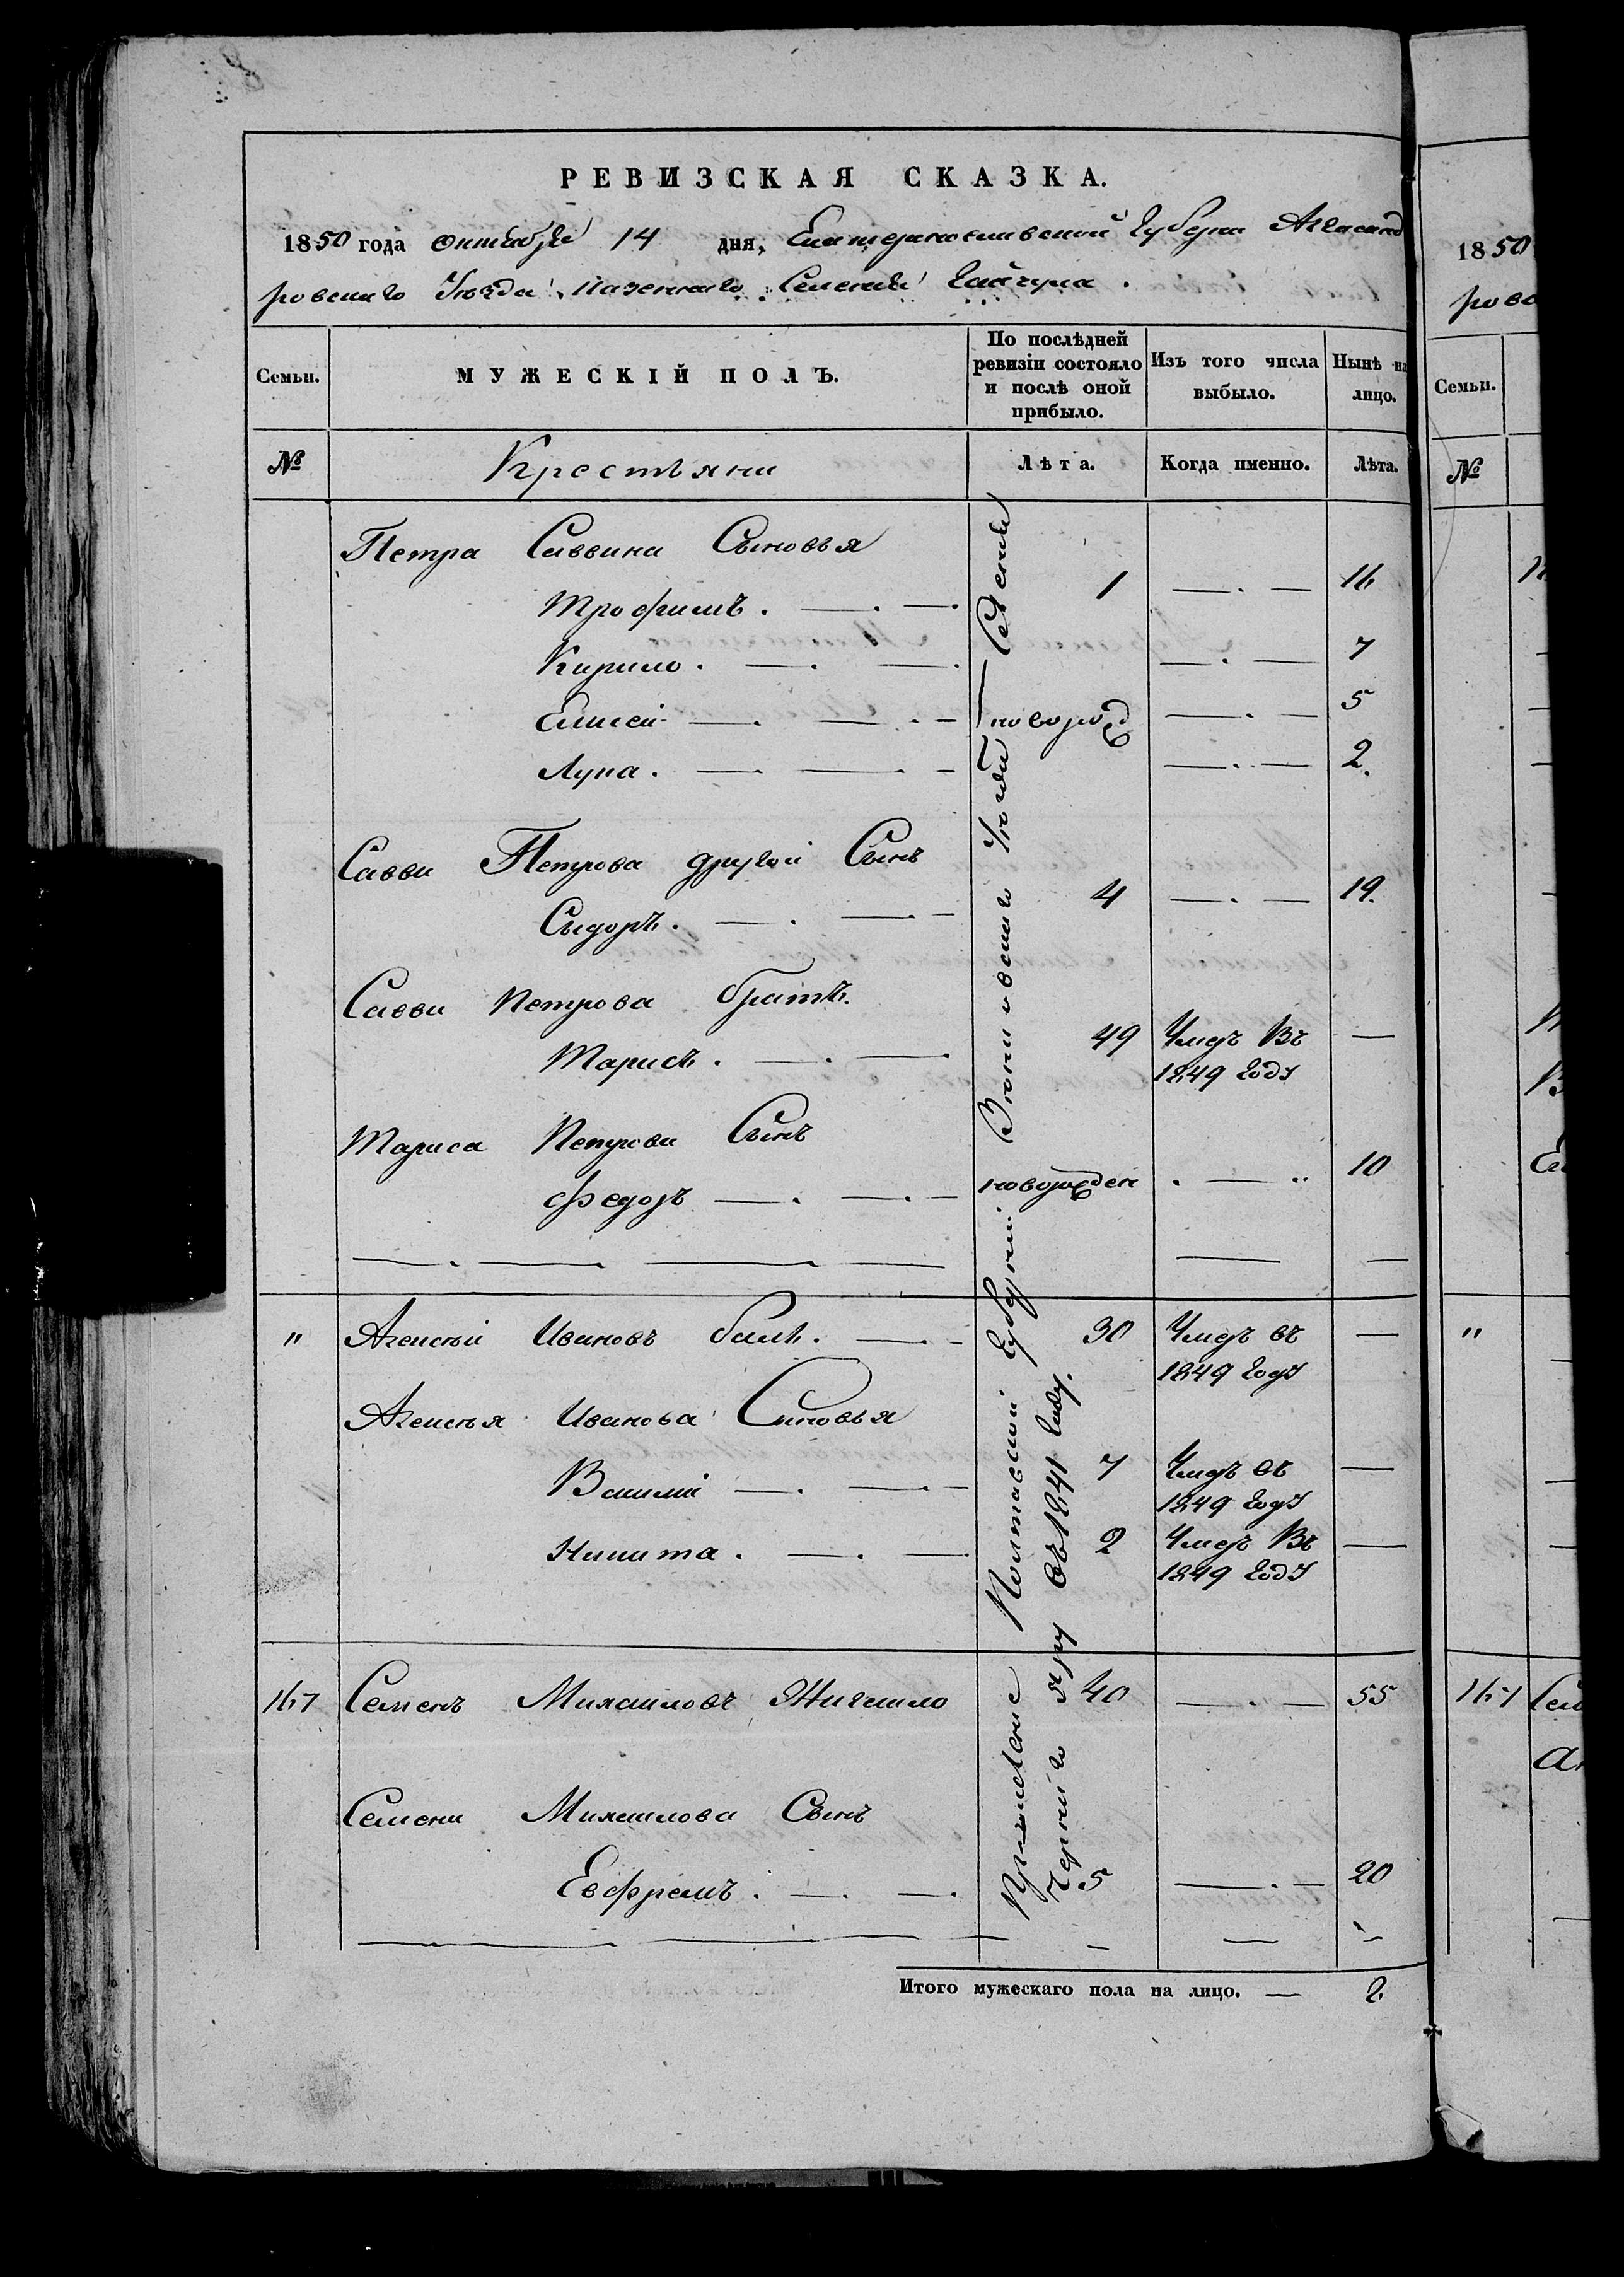 РЕВИЗСКАЯ СКАЗКА.
1850 года октября 14 дня, Екатеринославской Губерни Александ
ровскаго Уезда, казеннаго Селения Гайчула.
Семьи.
МУЖЕСКІЙ ПОЛЪ.
По послѣдней
ревизіи состояло
и послѣ оной
прибыло.
Изъ того числа
выбыло.
Нынѣ на
лицо.
№
Крестьяни
Лѣта.
Когда именно.
Лѣта.
Петра Саввина Сыновья
Трофимъ. 1 16
Кирило. 7
Елисей новорожд 5
Лука. 2.
Савви Петрова другой Сынъ
Сыдоръ. 4 19.
Савви Петрова братъ.
Тарисъ. 49 Умеръ Въ —
1849 Году
Тариса Петрова Сынъ
Федоръ новорожден 10
" Алексѣй Ивановъ 30 Умеръ въ —
1849 Году
Алексѣя Иванова Сыновья
Василий 7 Умеръ въ —
1849 Году
Никита. 2 Умеръ Въ —
1849 Году
167 Семенъ Михайловъ Жигайло 40 55
Семена Михайлова Сынъ
Евфремъ. 5 20
Полтавской Губерни Уезда Селения
Чернаго Яру въ 1841 Году.
Итого мужескаго пола на лицо. —
1850
рово
Семьи.
№
"
167 Сем